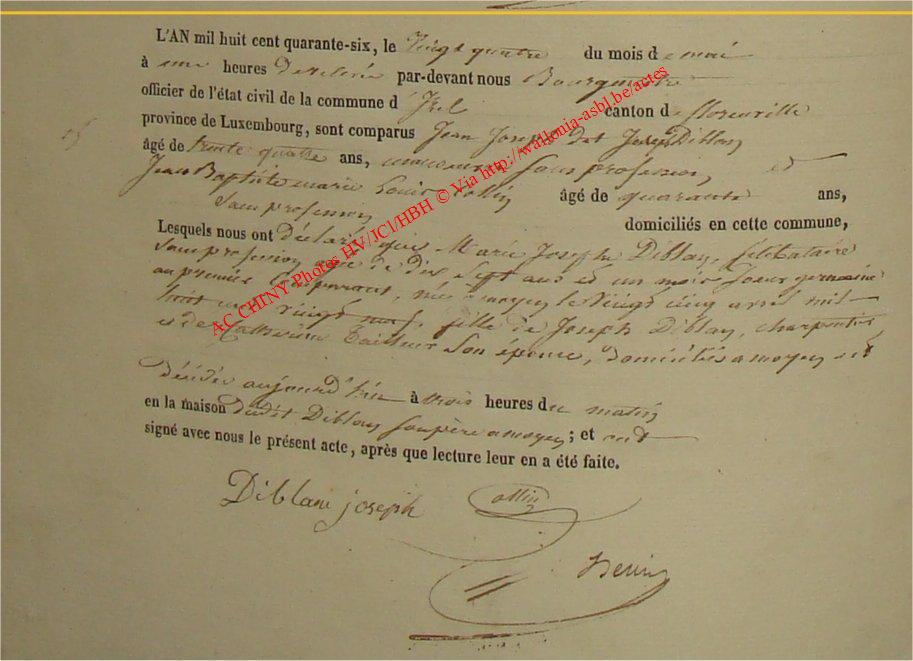 L'AN mil huit cent quarante-six, le Vingt quatre du mois de mai
à une heures de relevée par-devant nous Bourgmestre
officier de l'état civil de la commune d'Izel canton de florenville
province de Luxembourg, sont comparus Jean Joseph dit Diblay
âgé de trente quatre ans, sans profession et
Jean Baptiste marie Louis Collin âgé de quarante ans,
Sans profession domiciliés en cette commune,
Lesquels nous ont déclaré que Marie Joseph Diblay, célibataire
Sans profession agée de dix Sept ans et un mois Soeur germaine
au premier Comparant, née a moyen le Vingt cinq avril mil
huit cent vingt neuf, fille de Joseph Diblay, charpentier
et de Catherine Tailleur Son épouse, domiciliés a moyen est
décédée aujourd'hui à trois heures du matin
en la maison dudit Diblay Son père a moyen ; et ont
signé avec nous le présent acte, après que lecture leur en a été faite.
Diblani joseph Collin
AC CHINY Photos HV/JCl/HBH © Via http://wallonia-asbl.be/actes